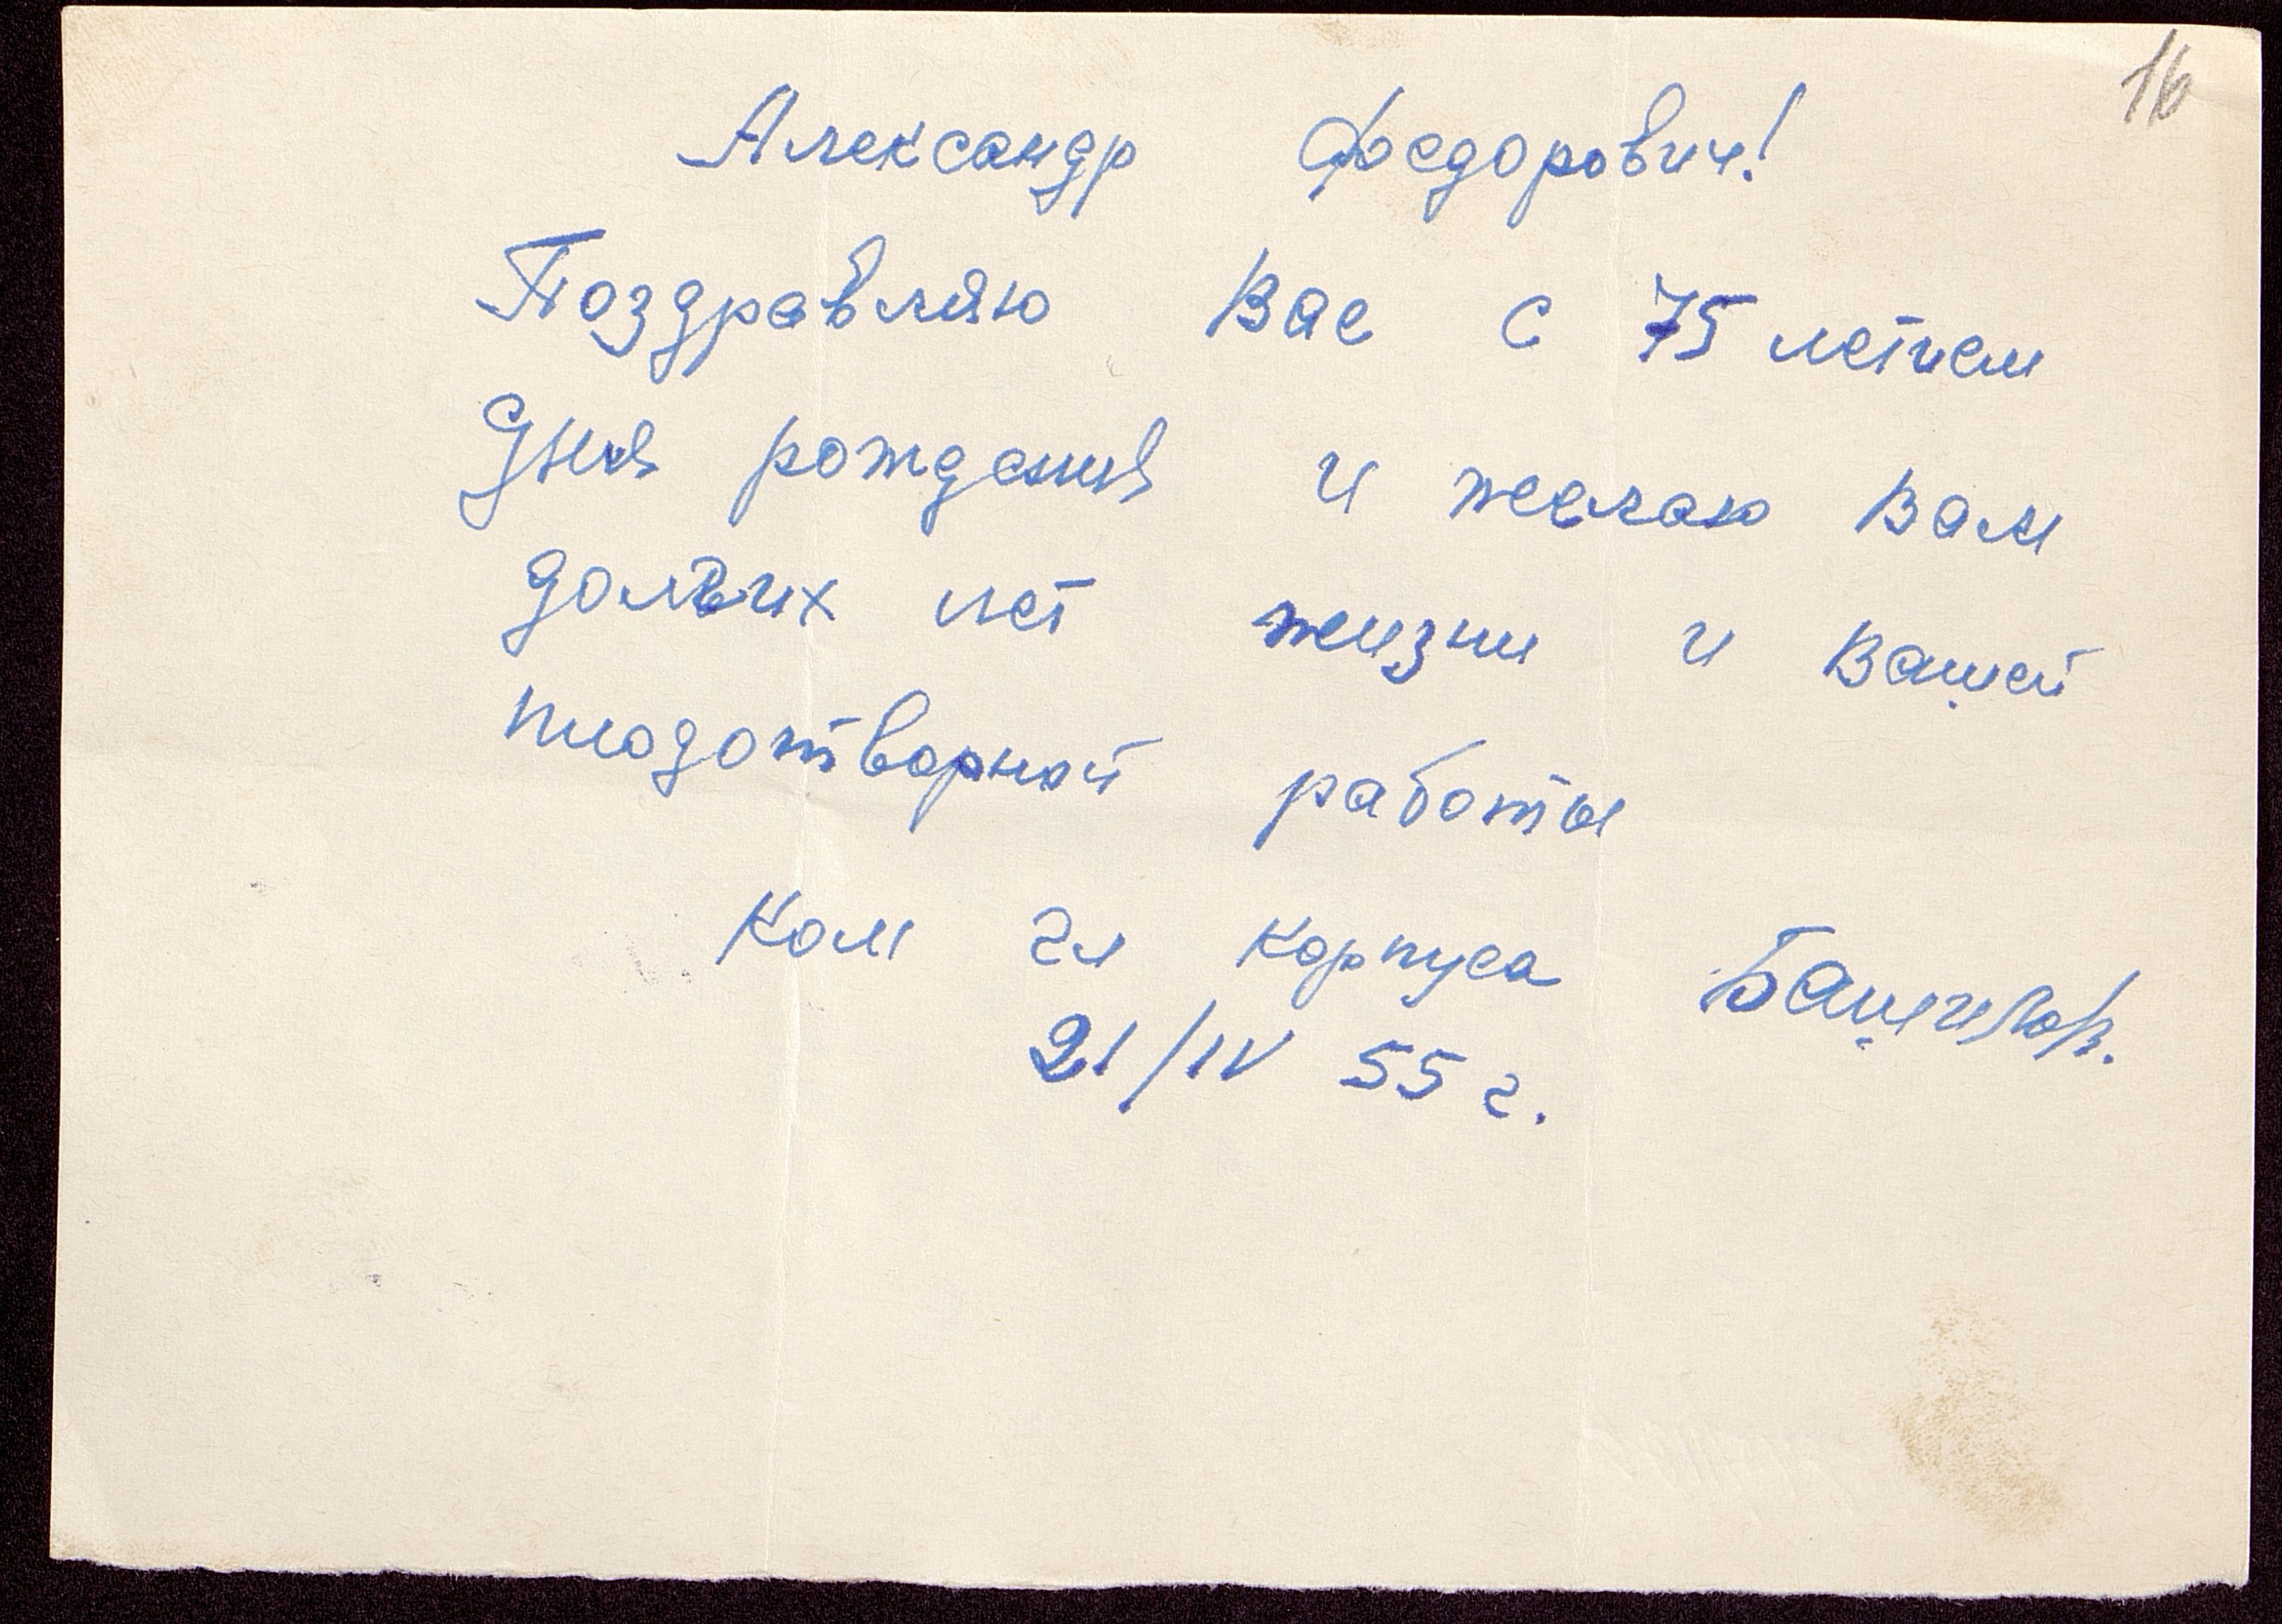 16
Александр Федорович!
Поздравляю Вас с 75 летием
дня рождения и желаю Вам
долгих лет жизни и Вашей
плодотворной работы
Ком гл корпуса
21/IV 55 г.